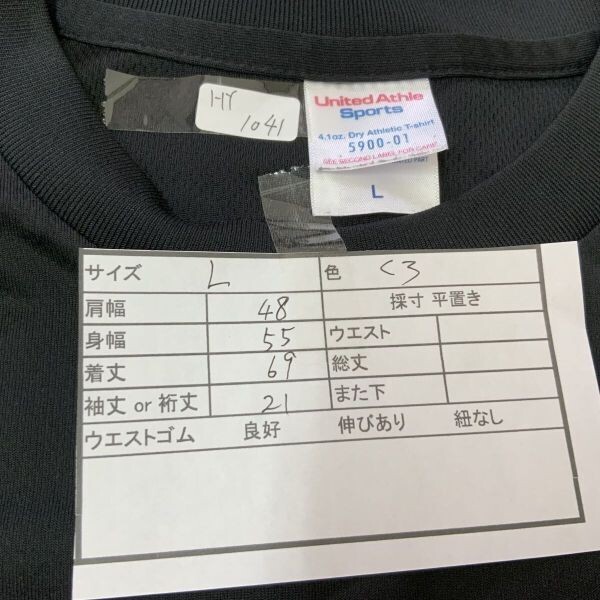 HY
1041
United Athle
Sports
4.1oz. Dry Athletic T-shirt
5900-01
SEE SECOND LABEL FOR CARE
L
サイズ L 色 くろ
肩幅 48 採寸 平置き
身幅 55 ウエスト
着丈 69 総丈
袖丈 or 裄丈 21 また下
ウエストゴム 良好 伸びあり 紐なし